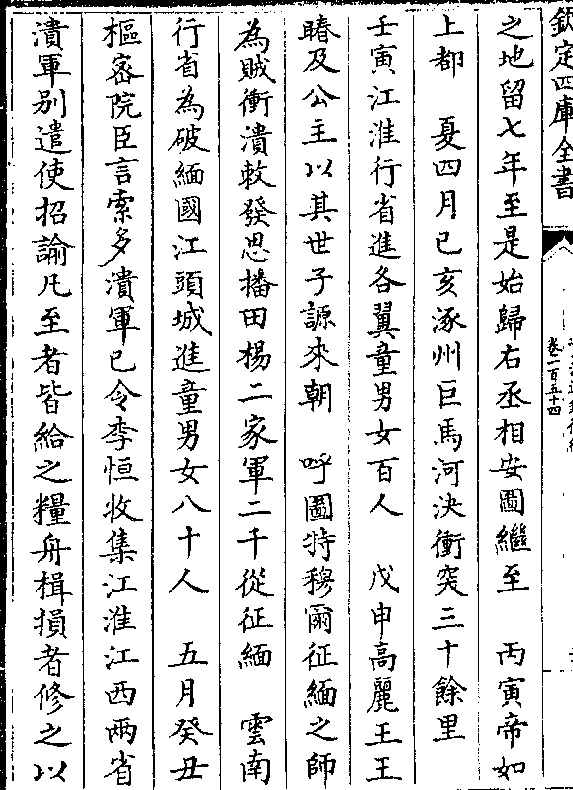 欽定四庫全書
卷一百五十四
之地留七年至是始歸右丞相安圖繼至　丙寅帝如
上都　夏四月己亥涿州巨馬河決衝突三十餘里
壬寅江淮行省進各翼童男女百人　戊申高麗王王
賰及公主以其世子謜來朝　呼圖特穆爾征緬之師
為賊衝潰敕發思播田楊二家軍二千從征緬　雲南
行省為破緬國江頭城進童男女八十人　五月癸丑
樞密院臣言索多潰軍已令李恒收集江淮江西兩省
潰軍别遣使招諭凡至者皆給之糧舟楫損者修之以